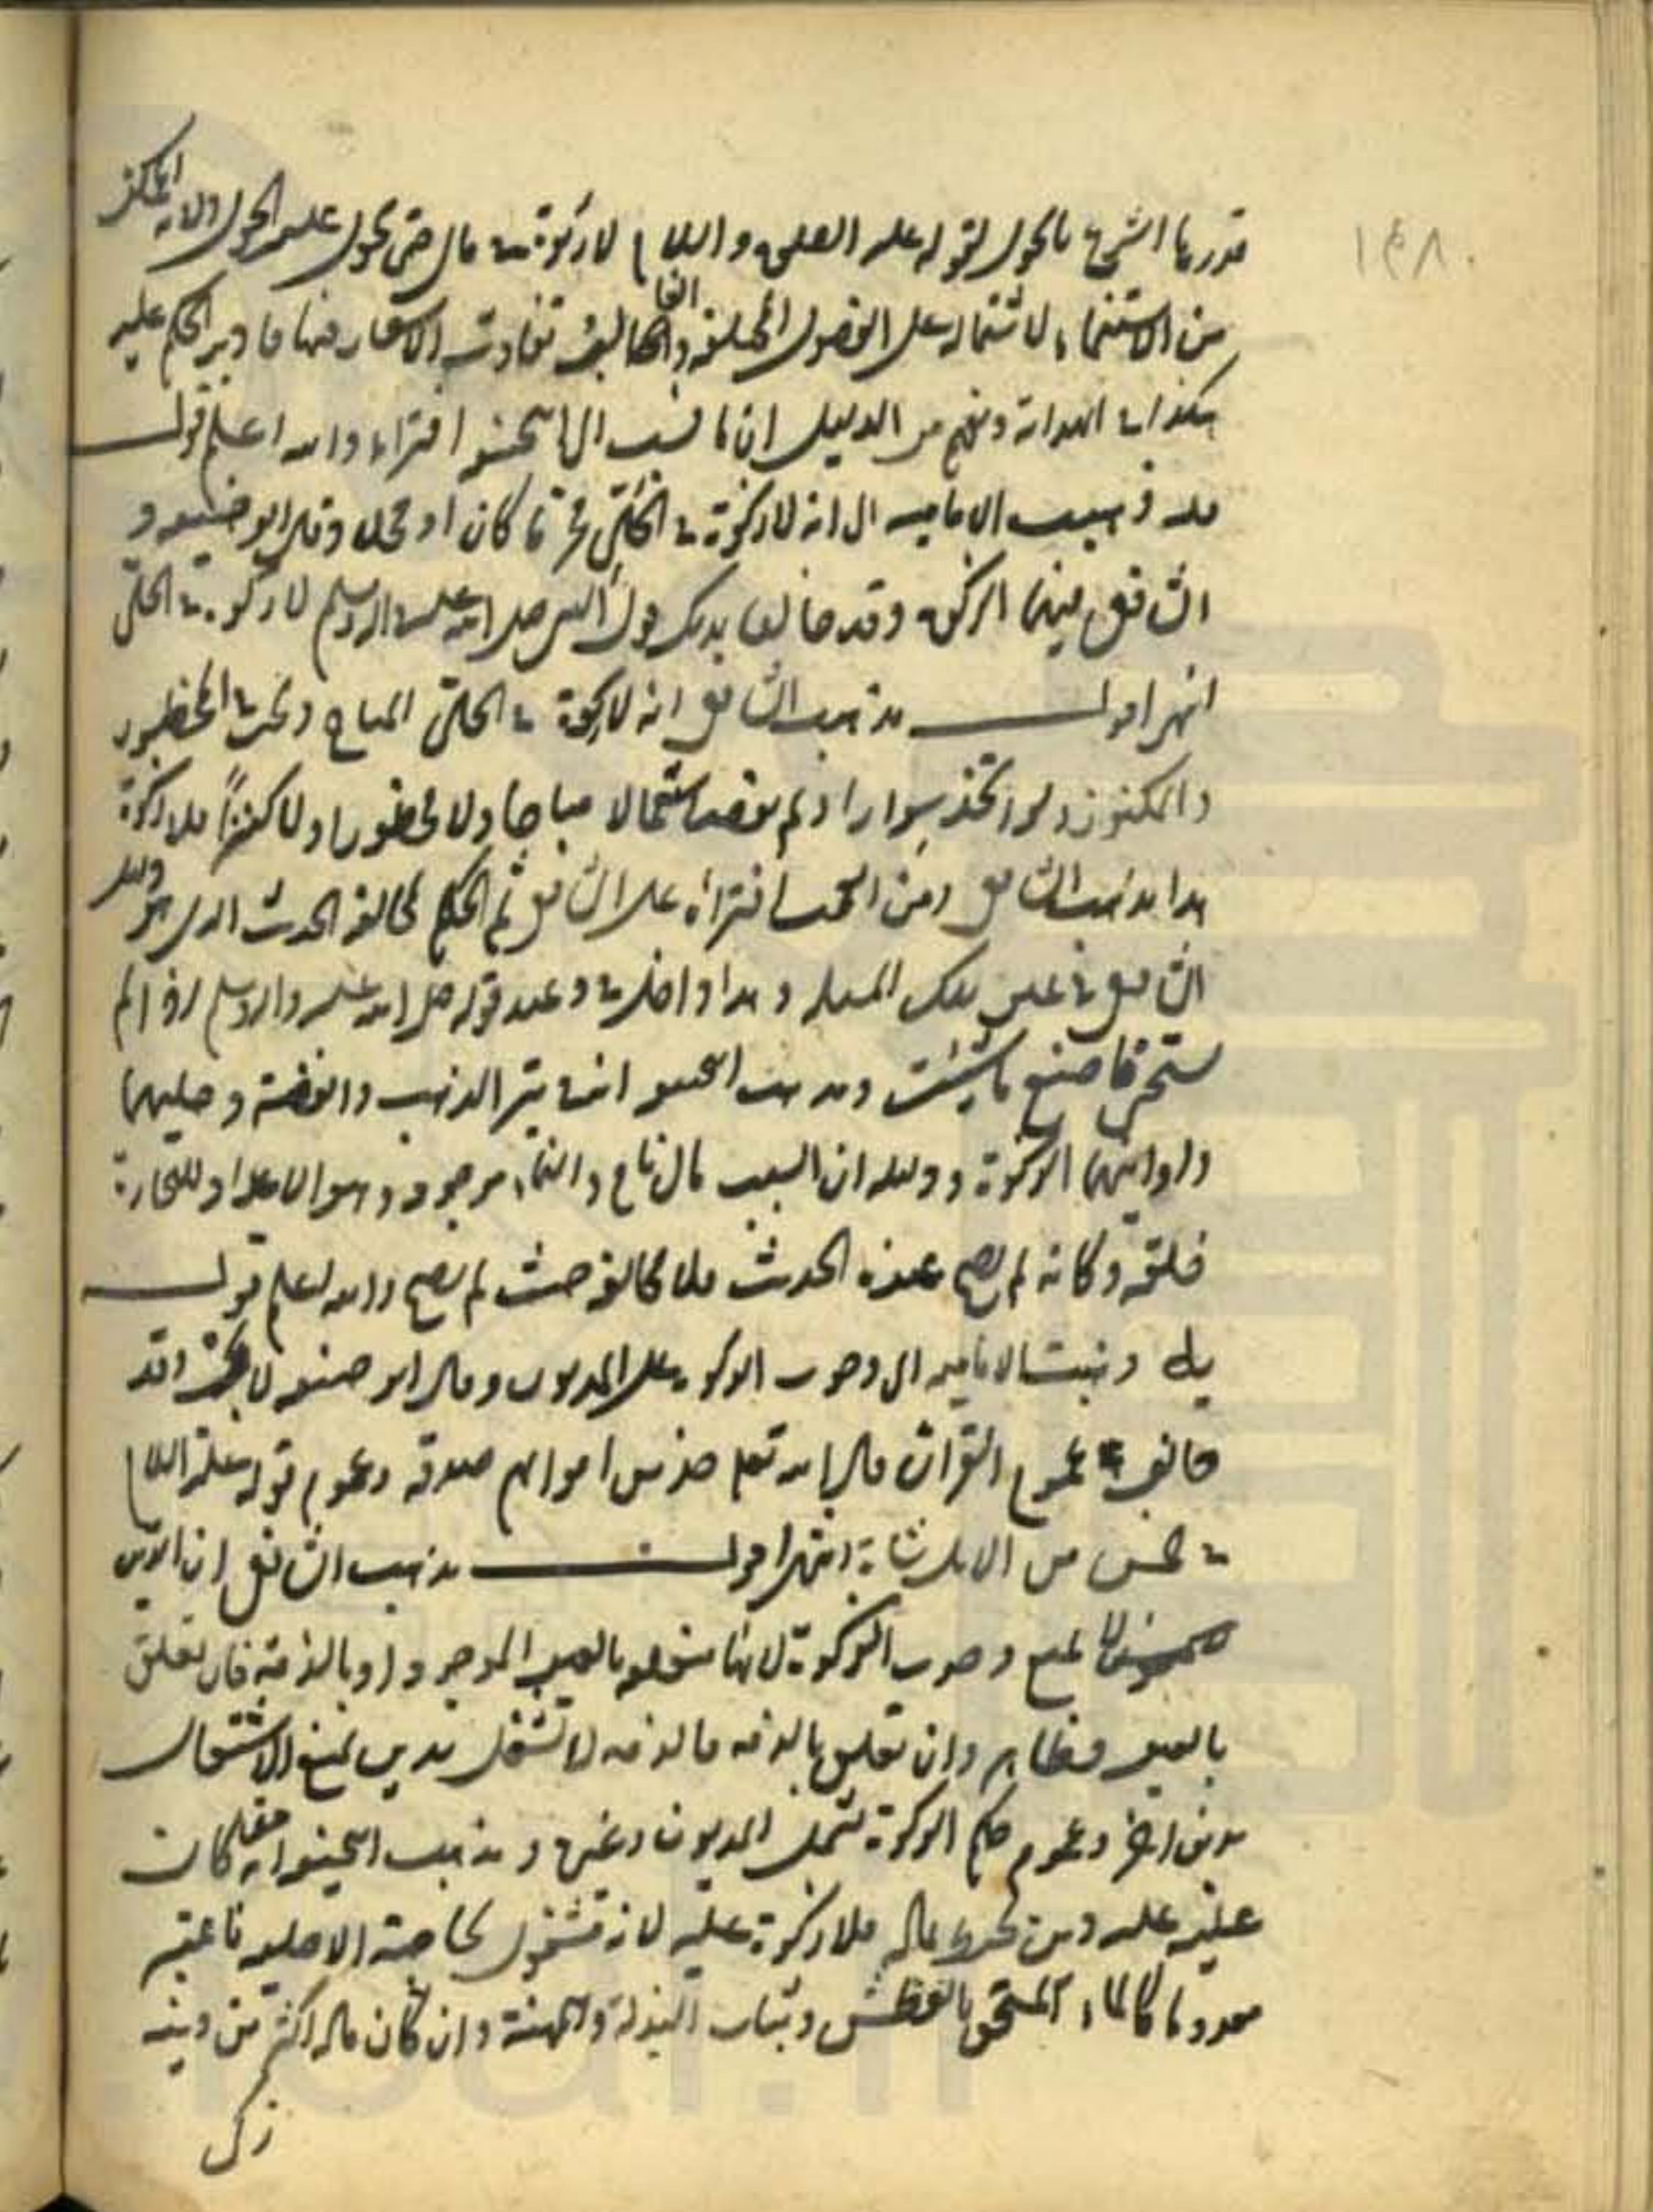 ١٤٨٠
قدرها الشرع بالحول لقوله عليه الصلوة والسلام لا زكوة في مال حتى يحول عليه الحول ولانه الممكن
من الاستنماء لاشتماله على الفصول المختلفة والغالب تفاوت الاسعار فيها فادير الحكم عليه
هكذا في الهداية وفهم من الدليل ان ما نسب الى ابي حنيفة افتراء والله اعلم قوله
مله ذهبت الامامية الى انه لا زكوة في الحلي محرما كان او محللا وقال ابو حنيفة و
الشافعي فيهما الزكوة وقد خالفا بذلك قول النبي صلى الله عليه واله وسلم لا زكوة في الحلي
انتهى اقول مذهب الشافعي انه لا زكوة في الحلي المباح وتجب في المحظور
والمكنوز ولو اتخذ سوارا ولم يقصد استعمالا مباحا ولا محظورا ولا كنزا فلا زكوة
هذا مذهب الشافعي ومن العجب افتراؤه على الشافعي ثم الحكم بمخالفة الحديث الذي هو دليل
الشافعي في عين تلك المسئلة وهذا داخل في وعيد قوله صلى الله عليه واله وسلم اذا لم
تستحي فاصنع ما شئت ومذهب ابي حنيفة ان في تبر الذهب والفضة وحليهما
واوانيهما الزكوة ودليله ان السبب مال نام والنماء موجود وهو الاعداد للتجارة
خلقة وكانه لم يصح عنده الحديث فلا مخالفة حيث لم يصح والله اعلم قوله
يا ذهبت الامامية الى وجوب الزكوة على المديون وقال ابو حنيفة لا يجب وقد
خالف عموم القران قال الله تعالى خذ من اموالهم صدقة وعموم قوله عليه السلام
في خمس من الابل شاة انتهى اقول مذهب الشافعي ان الدين
لا يمنع وجوب الزكوة لانها متعلقة بالعين الموجود او بالذمة فان تعلق
بالعين فظاهر وان تعلق بالذمة فالذمة لا تشتغل بدين يمنع الاشتغال
بدين اخر وعموم حكم الزكوة تشمل المديون وغيره ومذهب ابي حنيفة انه من كان
عليه دين يحيط بماله فلا زكوة عليه لانه مشغول بحاجته الاصلية فاعتبر
معدوما كالماء المستحق بالعطش وثياب البذلة والمهنة وان كان ماله اكثر من دينه
زكى